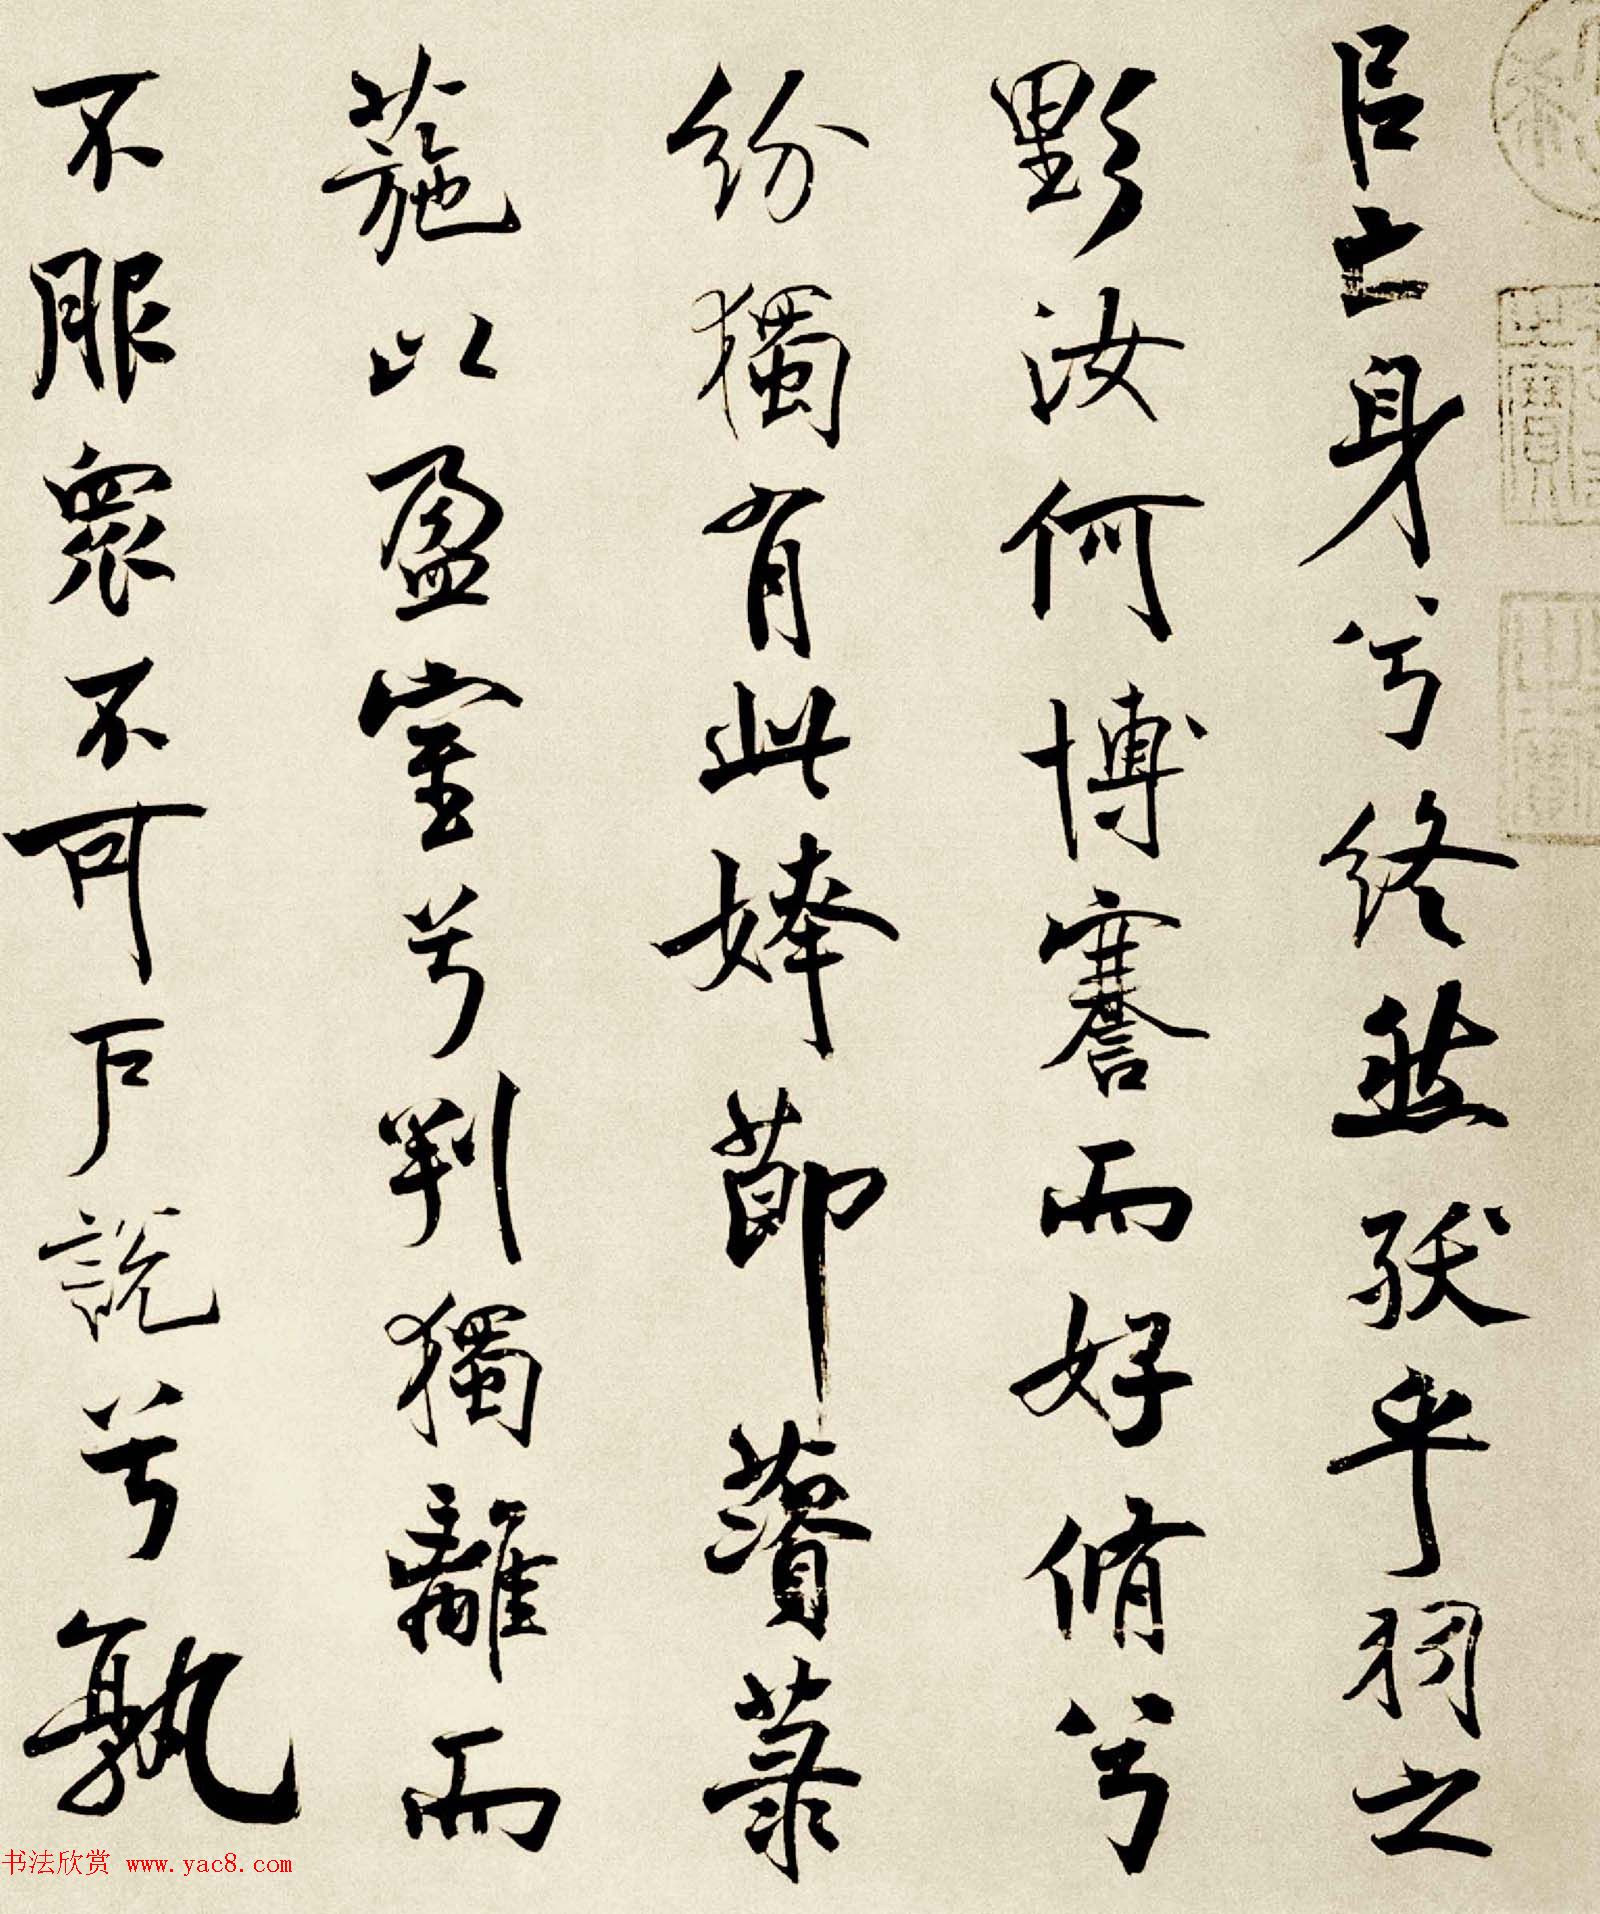 以亡身兮終然殀乎羽之
野汝何博謇而好脩兮
紛獨有此姱節薋菉
葹以盈室兮判獨離而
不服衆不可戶說兮孰
书法欣赏 www.yac8.com